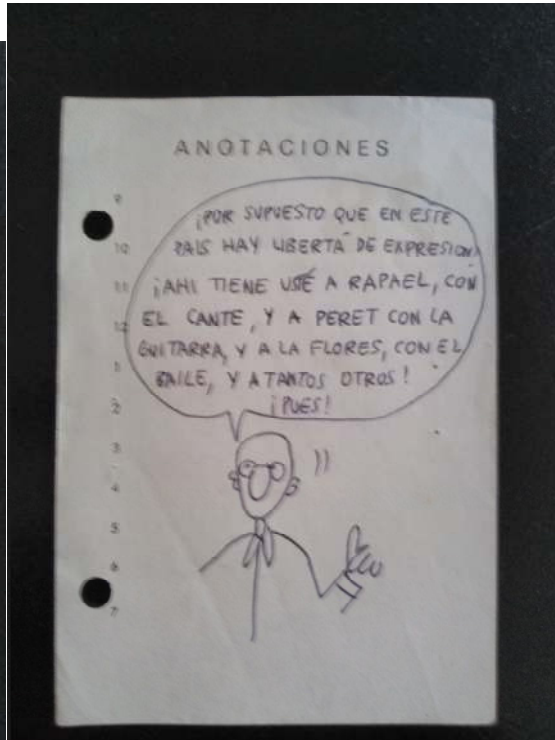 ANOTACIONES
9
¡POR SUPUESTO QUE EN ESTE
10
PAIS HAY LIBERTÁ DE EXPRESION!
11
¡AHI TIENE USTÉ A RAPAEL, CON
12
EL CANTE, Y A PERET CON LA
GUITARRA, Y A LA FLORES, CON EL
1
BAILE, Y A TANTOS OTROS!
2
¡PUES!
3
4
5
6
7